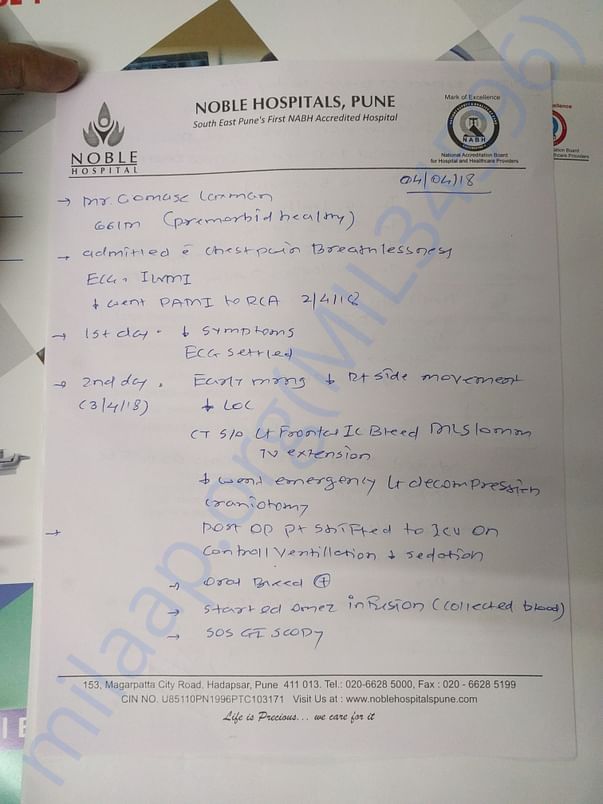 NOBLE HOSPITALS, PUNE
South East Pune's First NABH Accredited Hospital
NOBLE
HOSPITAL
Mark of Excellence
NABH
National Accreditation Board
for Hospital and Healthcare Providers
04/04/18
→ Mr. Gomase Laxman
66/M (premorbid healthy)
→ admitted c̄ chestpain Breathlessness
ECG, ILWMI
↓ went PAMI to RCA 2/4/18
→ 1st day - ↓ symptoms
ECG settled
→ 2nd day, Early mrng ↓ Rt side movement
(3/4/18) ↓ LOC
CT S/O Lt Frontal IC Bleed MLS 10mm
IV extension
↓ went emergency Lt decompression
craniotomy
→ post op pt shifted to ICU on
Controll Ventillation ↓ sedation
→ Oral Bleed ⊕
→ started omez infusion (collected blood)
→ SOS GI SCOPY
153, Magarpatta City Road, Hadapsar, Pune 411 013. Tel.: 020-6628 5000, Fax : 020 - 6628 5199
CIN NO. U85110PN1996PTC103171 Visit Us at : www.noblehospitalspune.com
Life is Precious... we care for it
milaap.org(MIL345396)